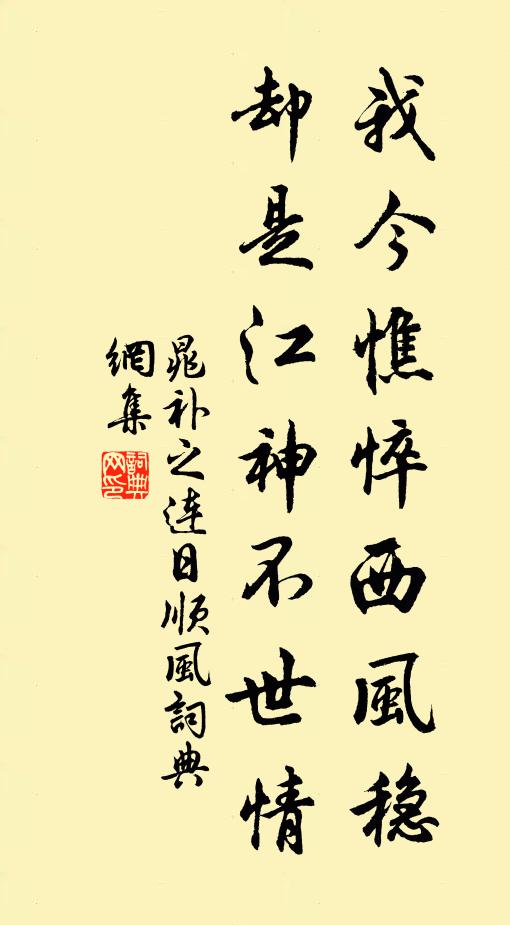 我今憔悴西風穩
却是江神不世情
晁补之连日順風詞典
網集
詞典
网印